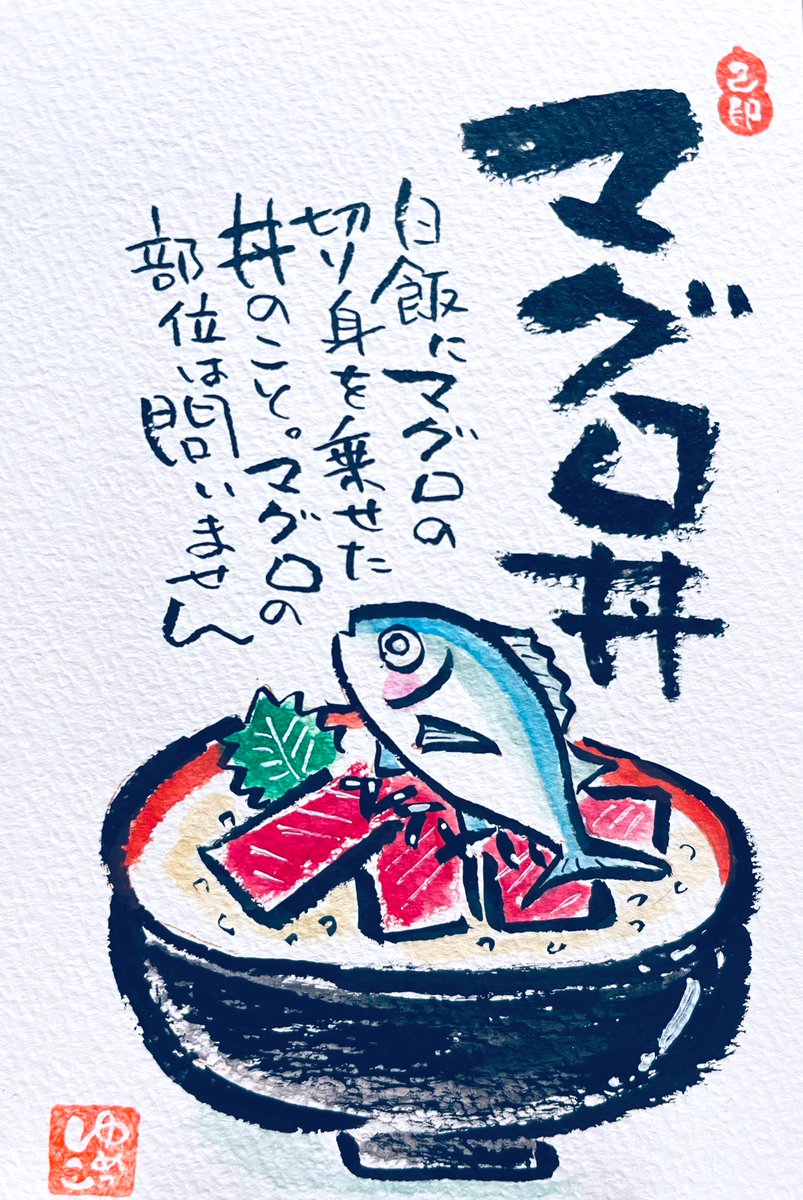 マグロ丼
白飯にマグロの
切り身を乗せた
丼のこと。マグロの
部位は問いません